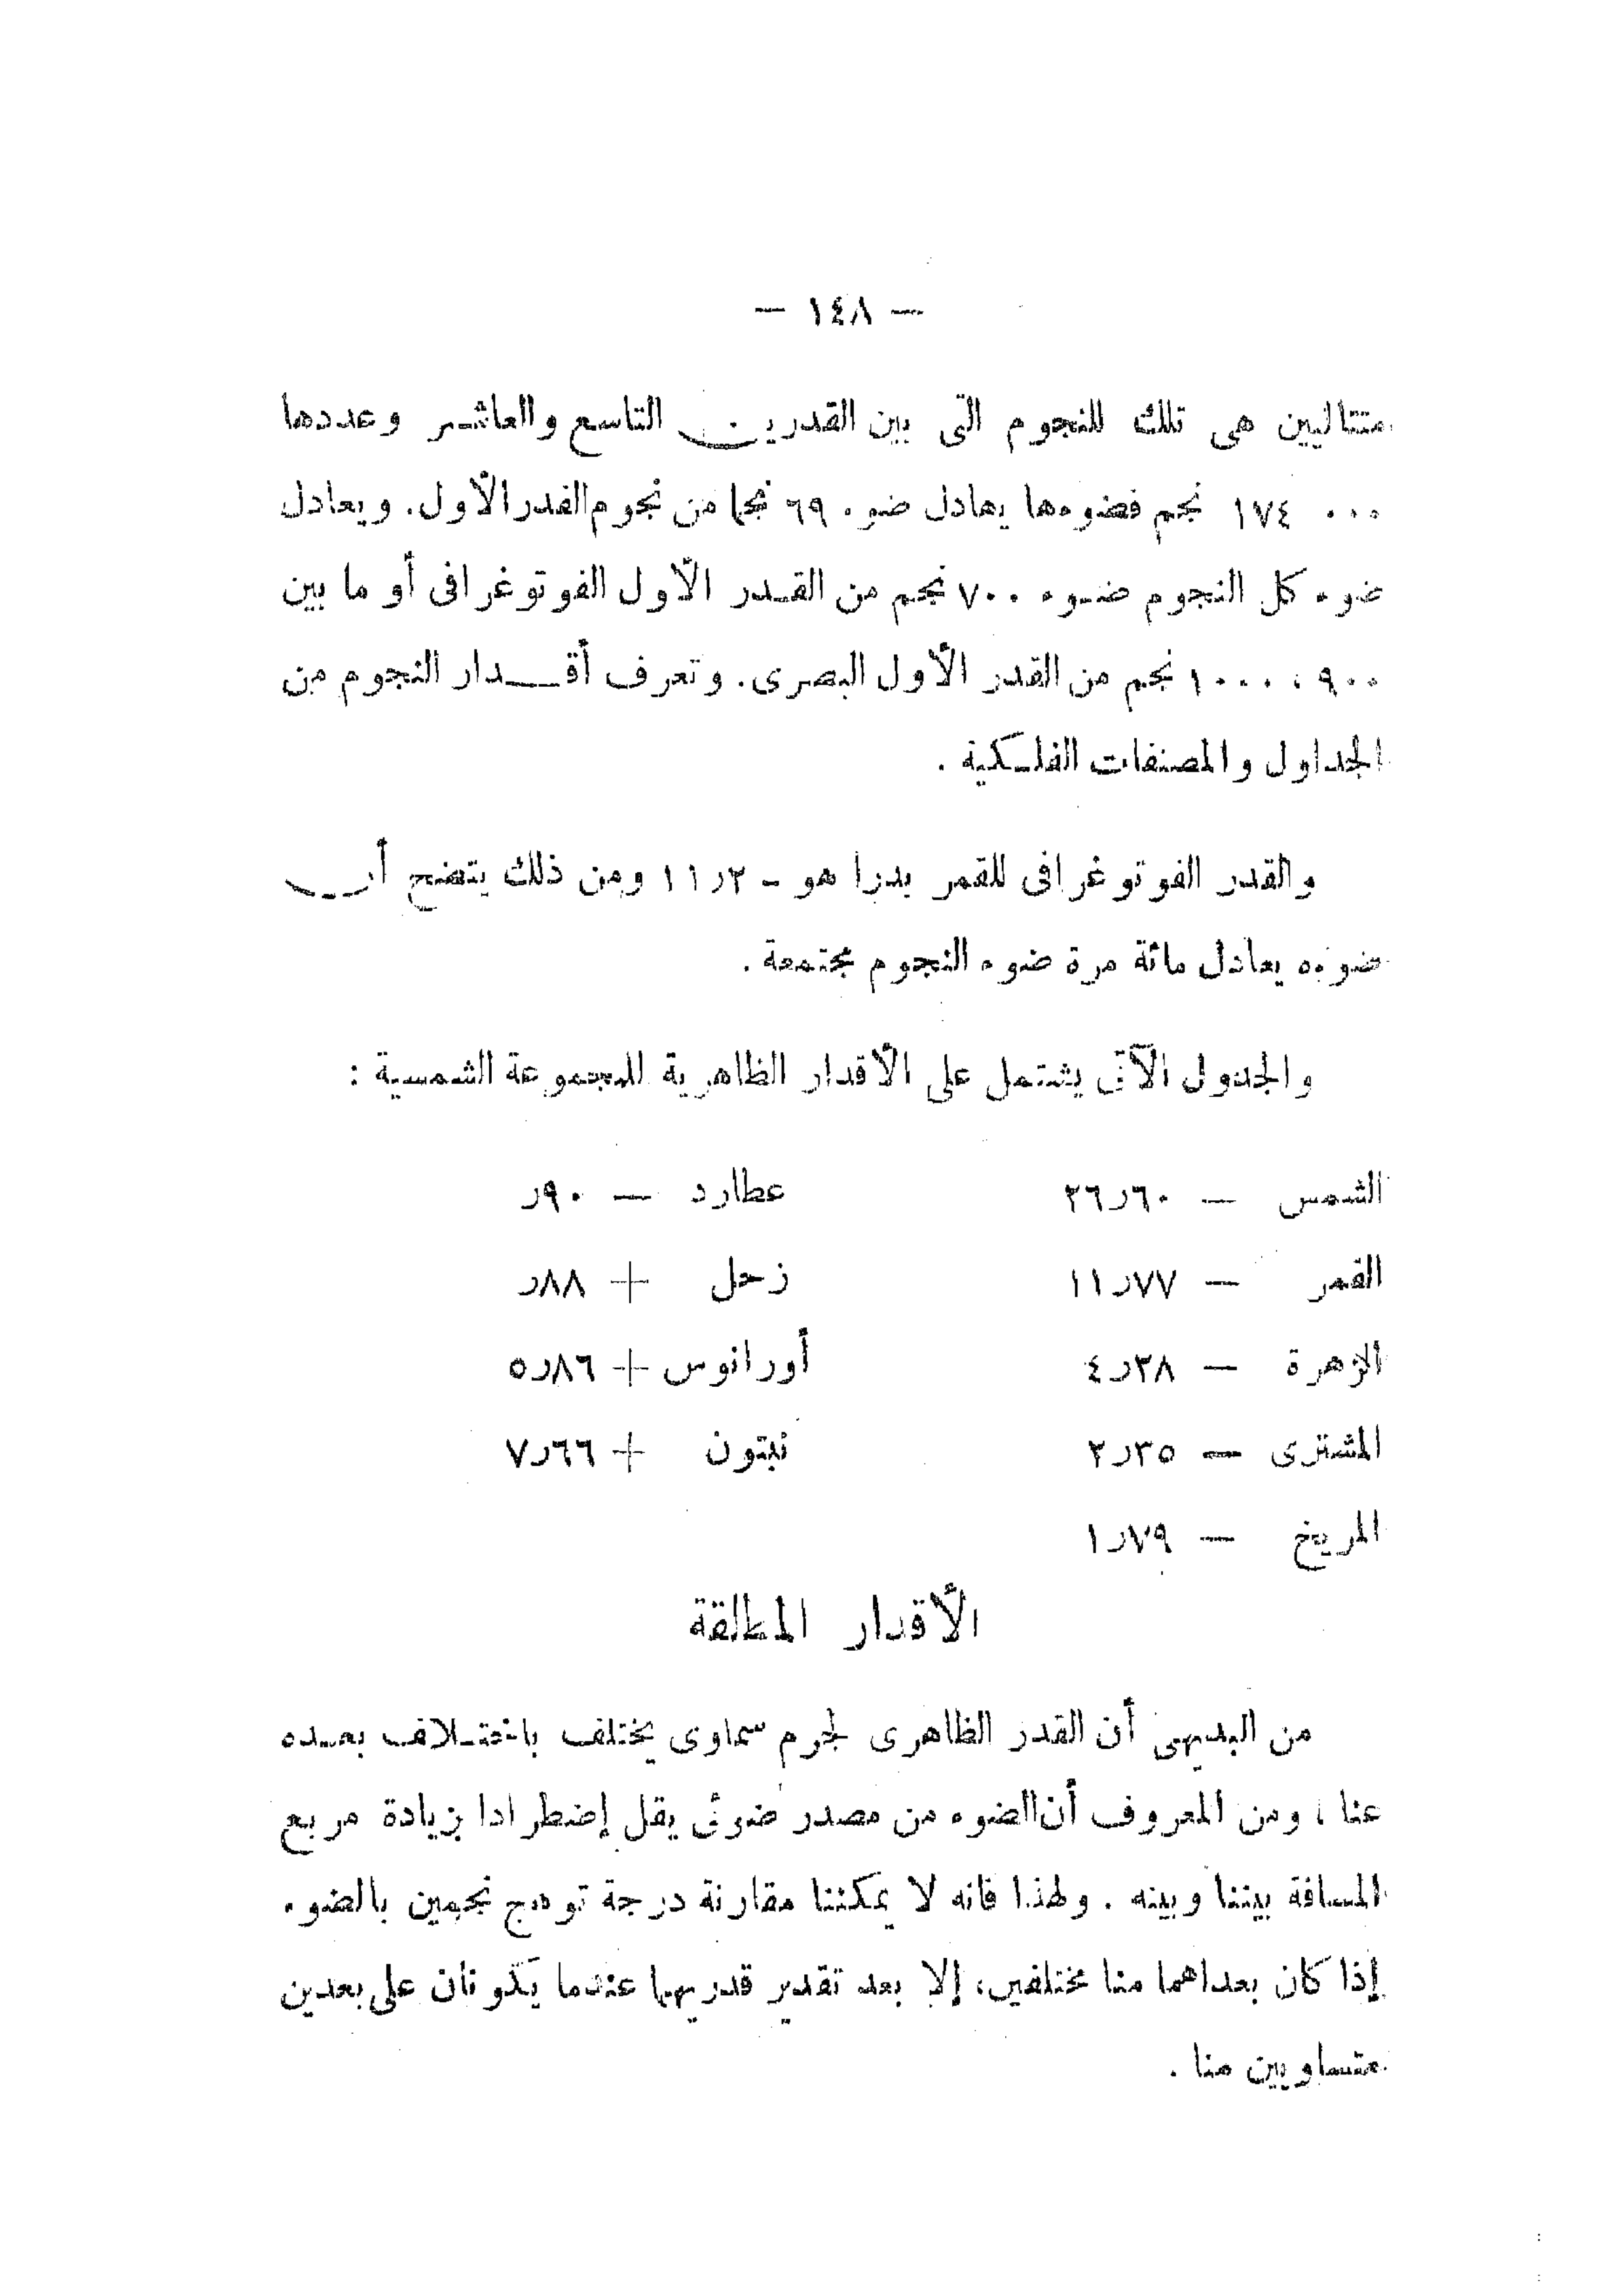 — ١٤٨ —
متتاليين هى تلك للنجوم التى بين القدرين التاسع والعاشر وعددها
١٧٤ ٠٠٠ نجم فضوءها يعادل ضوء ٦٩ نجما من نجوم القدر الأول. ويعادل
ضوء كل النجوم ضوء ٧٠٠ نجم من القدر الأول الفوتوغرافى أو ما بين
٩٠٠ ، ١٠٠٠ نجم من القدر الأول البصرى. وتعرف أقدار النجوم من
الجداول والمصنفات الفلكية .
والقدر الفوتوغرافى للقمر بدرا هو - ١١٫٢ ومن ذلك يتضح أن
ضوءه يعادل مائة مرة ضوء النجوم مجتمعة .
والجدول الآتى يشتمل على الأقدار الظاهرية للمجموعة الشمسية :
الشمس — ٢٦٫٦٠ عطارد — ٫٩٠
القمر — ١١٫٧٧ زحل + ٫٨٨
الزهرة — ٤٫٢٨ أورانوس + ٥٫٨٦
المشترى — ٢٫٣٥ نبتون + ٧٫٦٦
المريخ — ١٫٧٩
الأقدار المطلقة
من البديهى أن القدر الظاهرى لجرم سماوى يختلف باختلاف بعده
عنا ، ومن المعروف أن الضوء من مصدر ضوئى يقل إضطرادا بزيادة مربع
المسافة بيننا وبينه . ولهذا فانه لا يمكننا مقارنة درجة توهج نجمين بالضوء
إذا كان بعداهما منا مختلفين، إلا بعد تقدير قدريهما عندما يكونان على بعدين
متساويين منا .